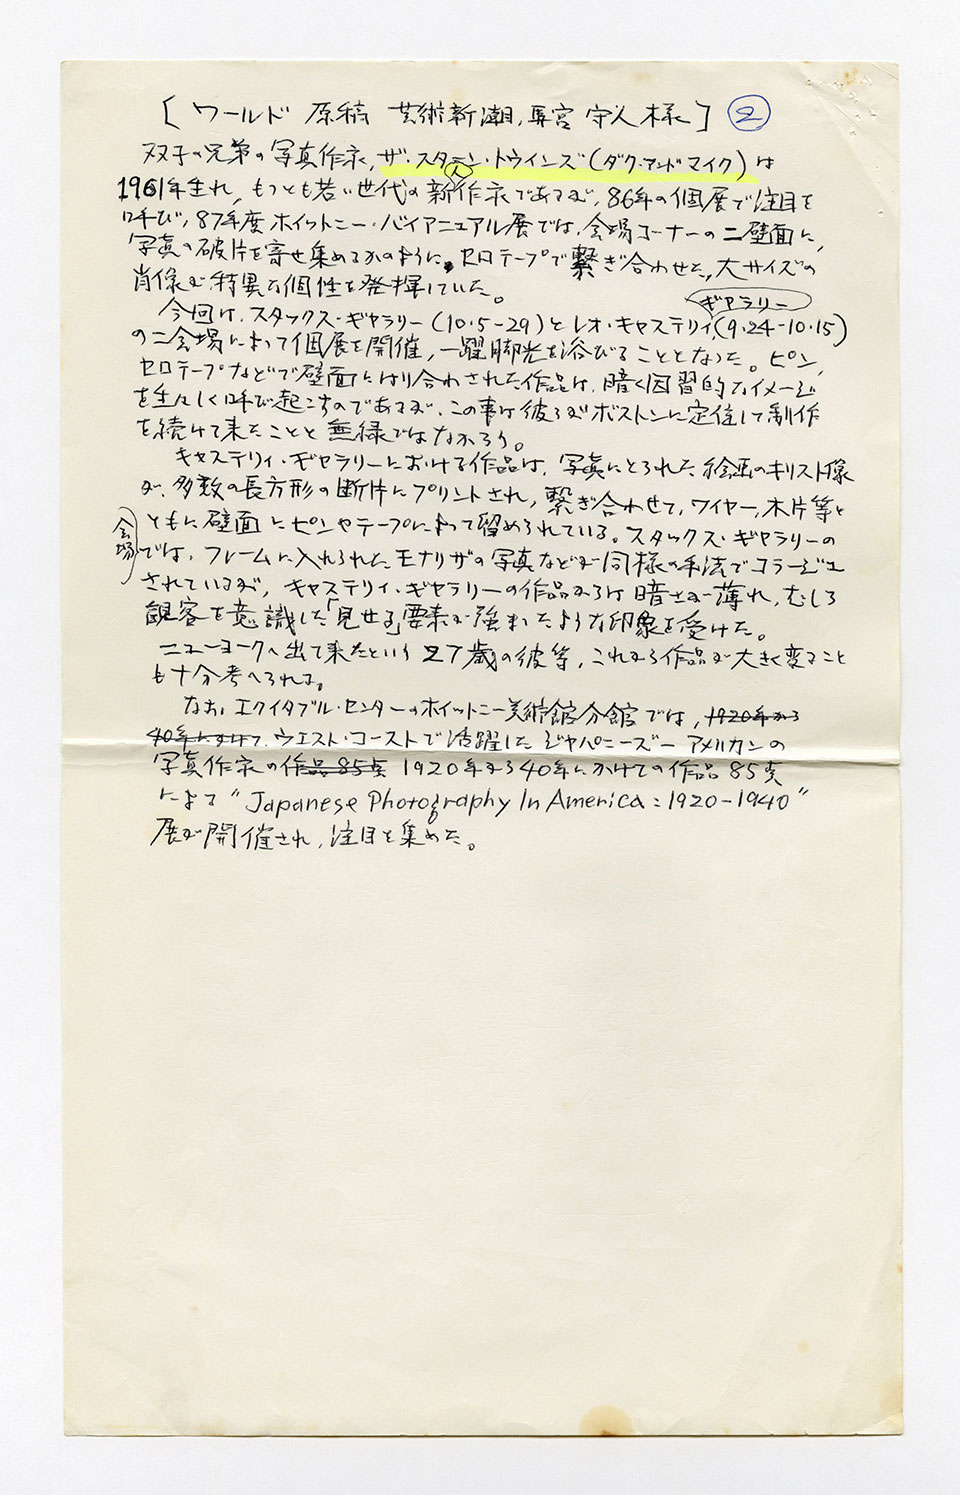 [ワールド 原稿 芸術新潮, 馬宮 守人様] ②
双子の兄弟の写真作家, ザ・スターン・トウインズ(ダグ・アンド・マイク)は
1961年生れ, もっとも若い世代の新人作家であるが, 86年の個展で注目を
呼び, 87年度ホイットニー・バイアニュアル展では, 会場コーナーの二壁面に,
写真の破片を寄せ集めるかのように, セロテープで繋ぎ合わせた, 大サイズの
肖像が特異な個性を発揮していた。
今回は, スタックス・ギャラリー(10・5-29)とレオ・キャステリィ・ギャラリー(9・24-10・15)
の二会場によって個展を開催, 一躍脚光を浴びることとなった。ピン,
セロテープなどで壁面にはり合わされた作品は, 暗く因習的なイメージ
を生々しく呼び起こすのであるが, この事は彼らがボストンに定住して制作
を続けて来たことと無縁ではなかろう。
キャステリィ・ギャラリーにおける作品は, 写真にとられた絵画のキリスト像
が, 多数の長方形の断片にプリントされ, 繋ぎ合わせて, ワイヤー, 木片等と
ともに壁面にピンやテープによって留められている。スタックス・ギャラリーの
会場では, フレームに入れられたモナリザの写真などが同様の手法でコラージュ
されているが, キャステリィ・ギャラリーの作品からは暗さが薄れ, むしろ
観客を意識した「見せる」要素が強まったような印象を受けた。
ニューヨークへ出て来たという27歳の彼等, これから作品が大きく変ること
も十分考へられよう。
なお, エクイタブル・センターのホイットニー美術館分館では, 1920年から
40年にかけて, ウエスト・コーストで活躍したジャパニーズーアメリカンの
写真作家の作品85点 1920年から40年にかけての作品85点
によって "Japanese Photography In America : 1920-1940"
展が開催され, 注目を集めた。